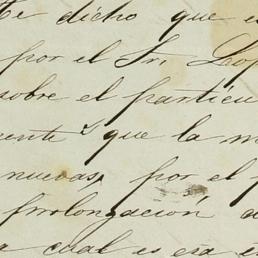 te dicho que e
por el Sr. Leop
sobre el particu
rente que la m
nuevas, por el p
prolongación d
a cual es esa es